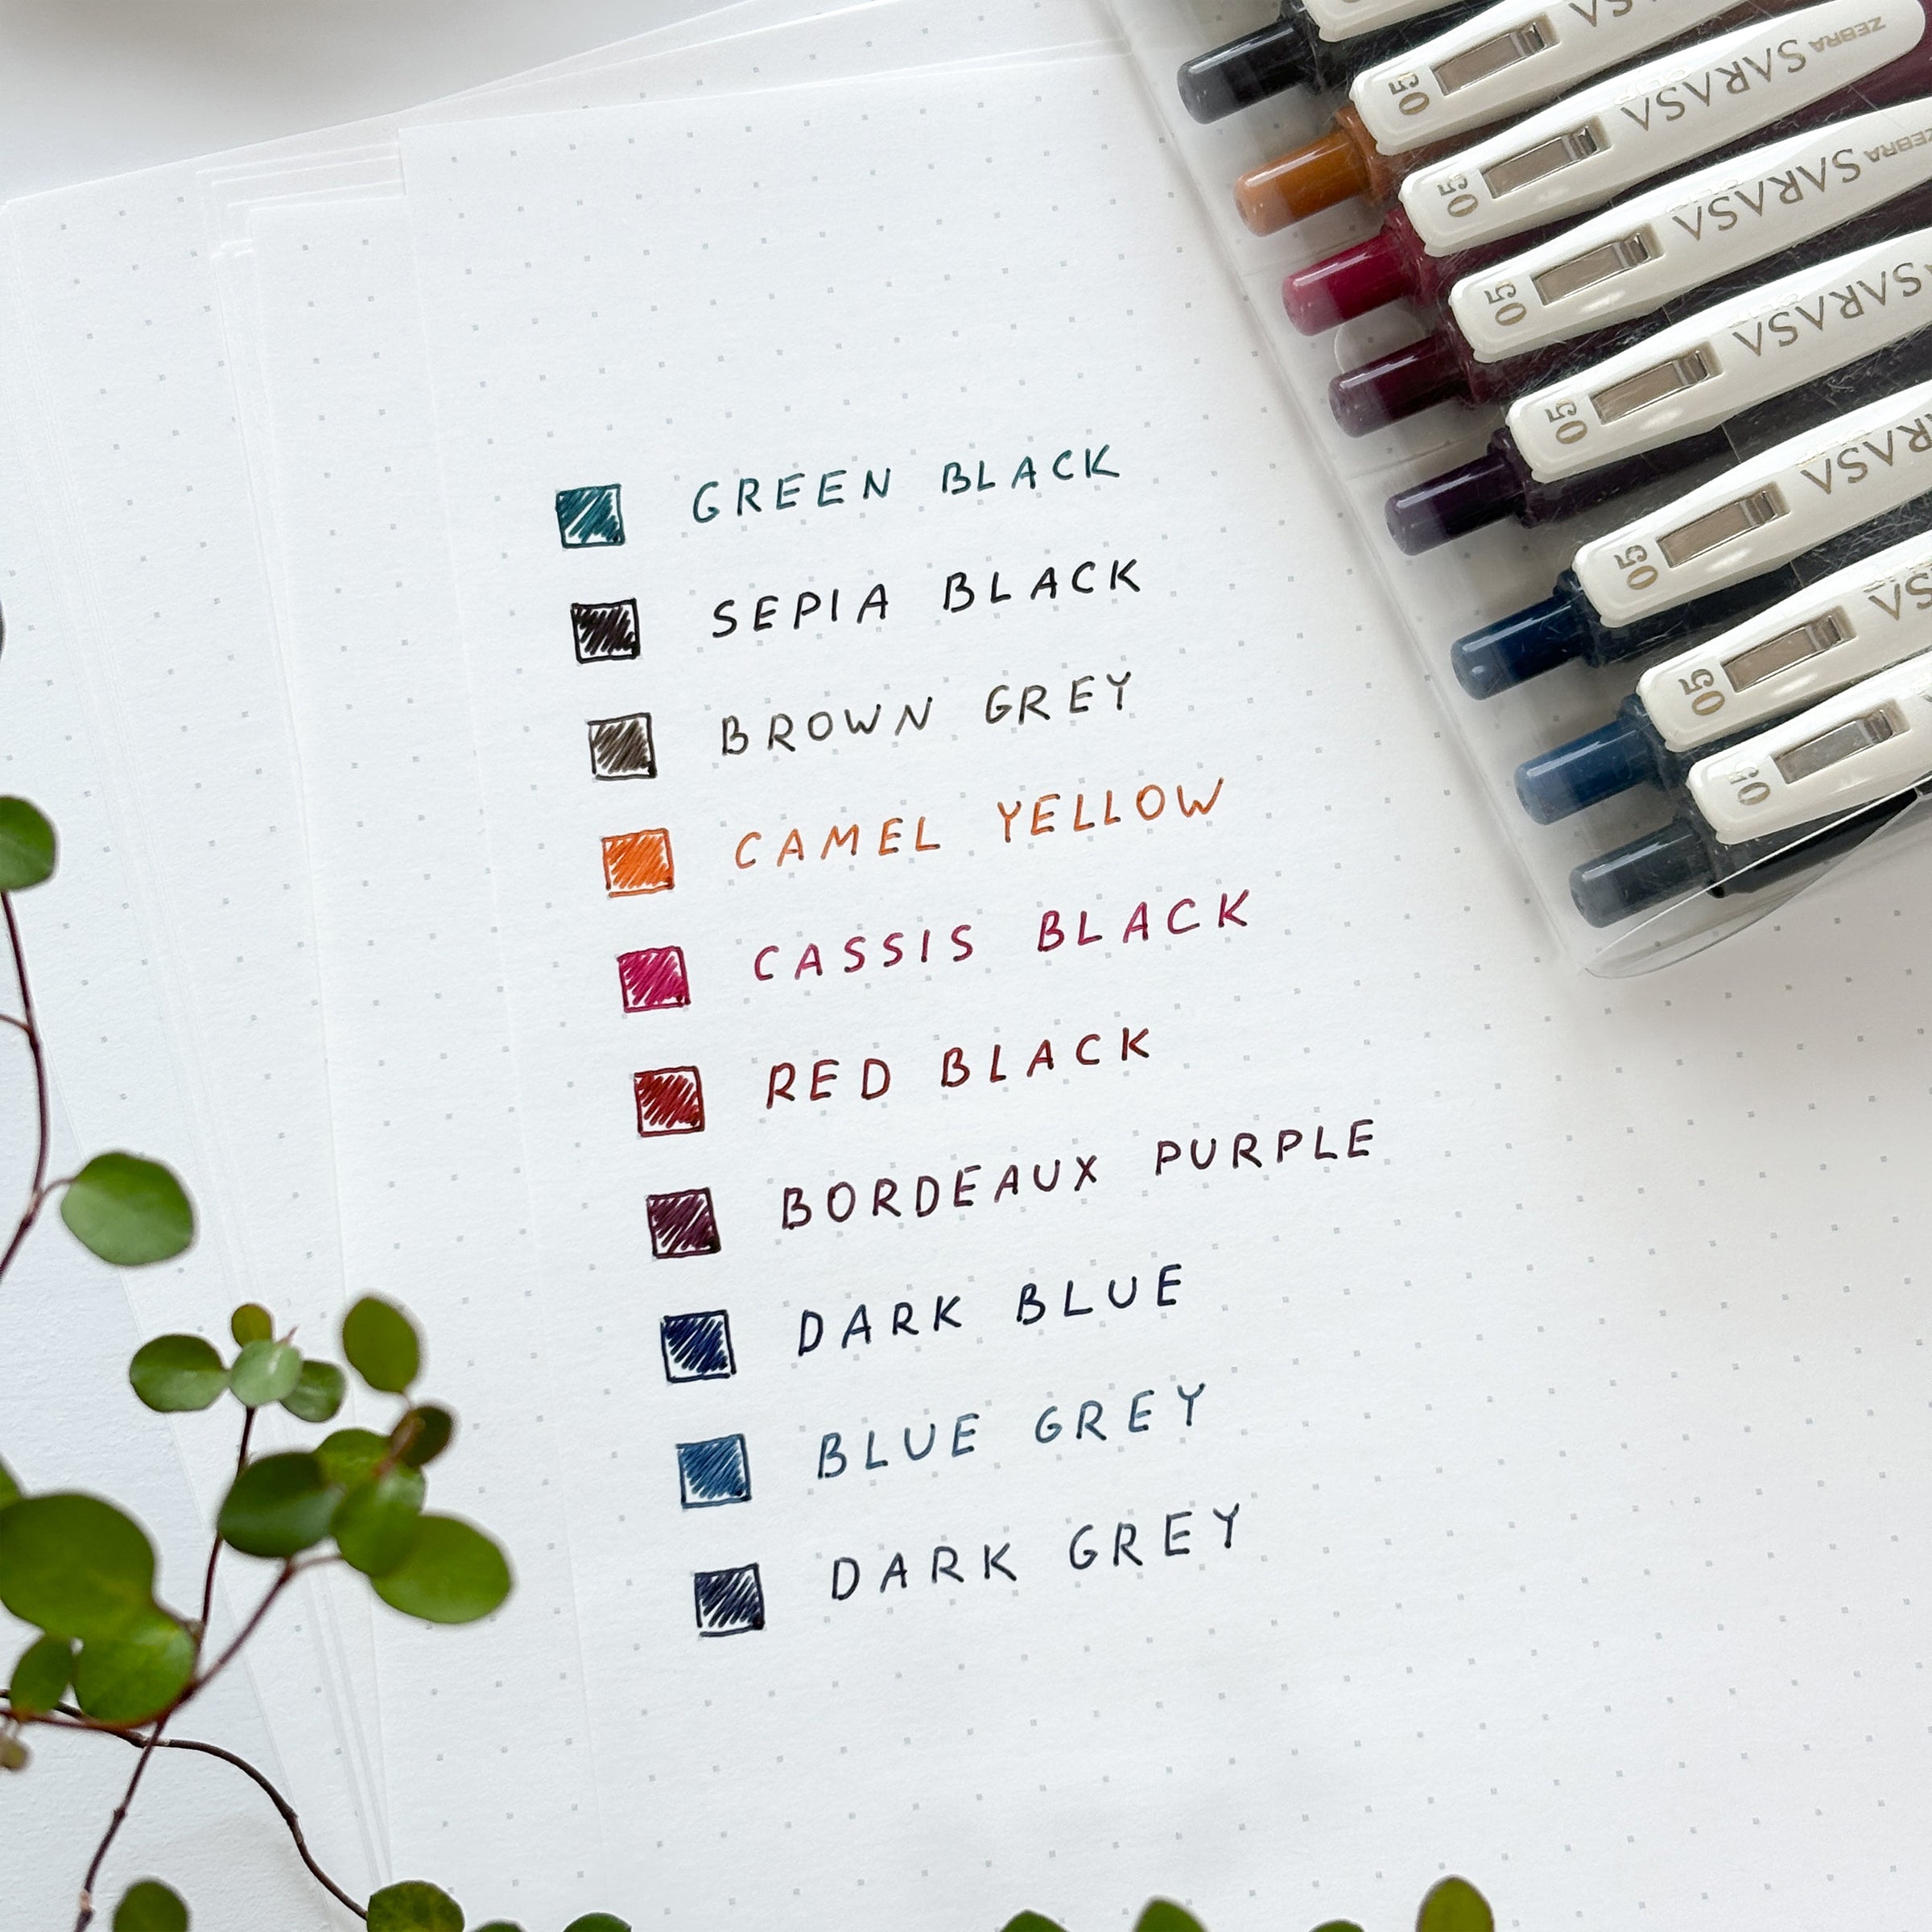 GREEN BLACK
SEPIA BLACK
BROWN GREY
CAMEL YELLOW
CASSIS BLACK
RED BLACK
BORDEAUX PURPLE
DARK BLUE
BLUE GREY
DARK GREY
05
05 SARASA ZEBRA
05 SARASA ZEBRA
05 SARASA
05
05
05